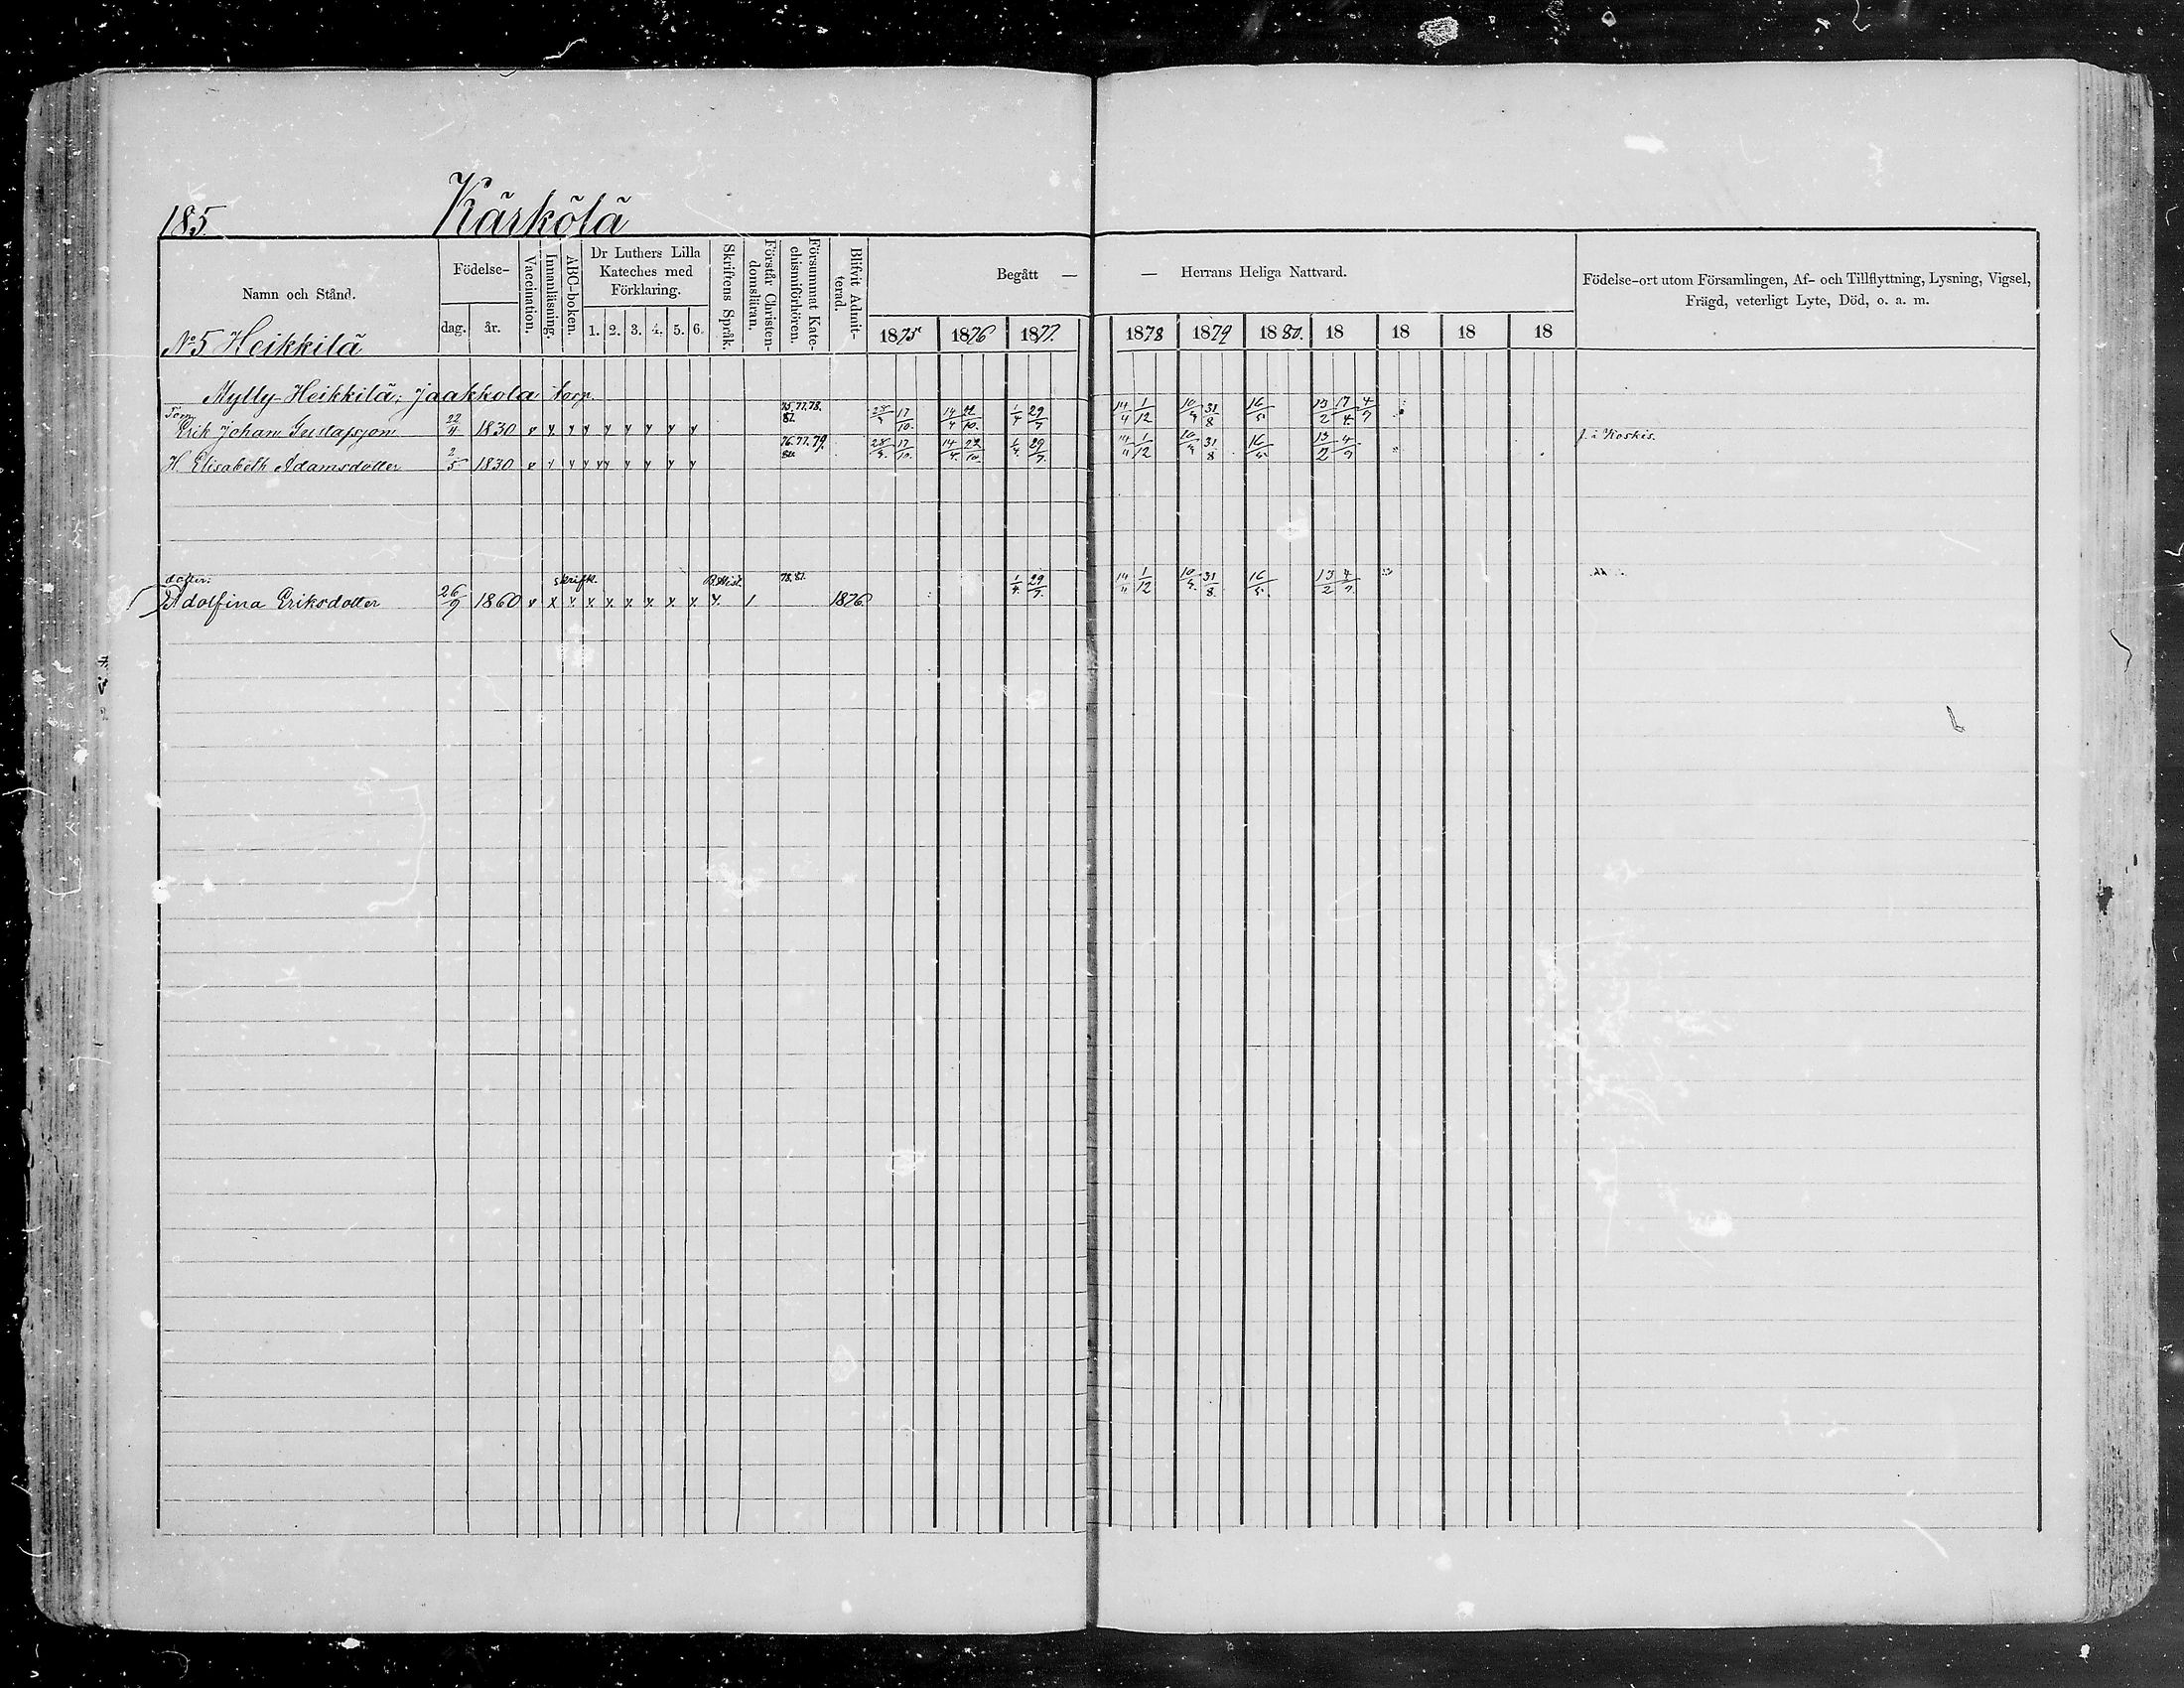 185.
Kärkölä
Namn och Stånd.
Födelse-
dag.
år.
Vaccination.
Innanläsning.
ABC-boken.
Dr Luthers Lilla
Kateches med
Förklaring.
1. 2. 3. 4. 5. 6.
Skriftens Språk.
Förstår Christen-
domsläran.
Försummat Kate-
chismiförhören.
Blifvit Admit-
terad.
Begått —
— Herrans Heliga Nattvard.
1875 1876 1877. 1878 1879 1880. 18 18 18 18
Födelse-ort utom Församlingen, Af- och Tillflyttning, Lysning, Vigsel,
Frägd, veterligt Lyte, Död, o. a. m.
No 5 Heikkilä
Mylly-Heikkilä; Jaakkola torp
Torp.
Erik Johan Gustafsson 22/4 1830 v y y y y y y y y 75.77.78. 81. 17/10. 14/4 22/10. 1/4 29/7 14/4 1/12 10/4 31/8 16/5 13/2 17/4. 4/7
H. Elisabeth Adamsdotter 2/5 1830 v y y y y y y y y 76.77.79. 17/10. 14/4. 22/10. 1/4. 29/7. 14/4 1/12 10/4 31/8 16/5 13/2 4/7 f. i Koskis.
dotter:
Adolfina Eriksdotter 26/9 1860 v x x x x x x x x skrift. B.Hist. y. 1 78.81. 1876 1/4. 29/7. 14/4 1/12 10/4. 31/8. 16/5. 13/2 4/7